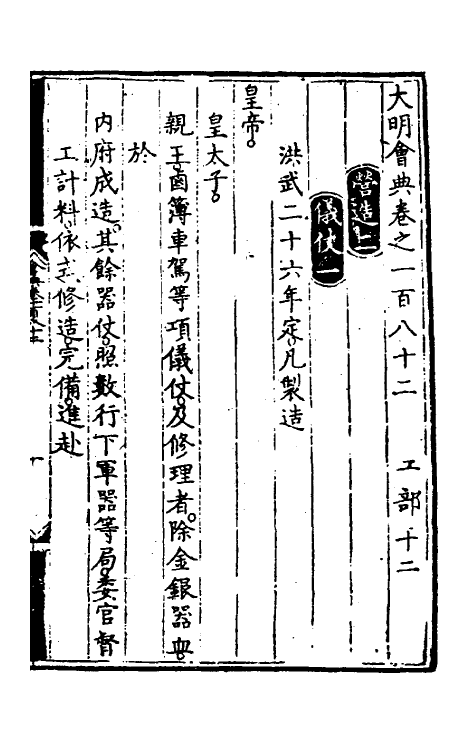 大明會典卷之一百八十二 工部十二
營造二
儀仗一
洪武二十六年定。凡製造
皇帝。
皇太子。
親王鹵簿車駕等項儀仗。及修理者。除金銀器皿。
於
內府成造。其餘器仗。照數行下軍器等局。委官督
工計料。依式修造。完備。進赴